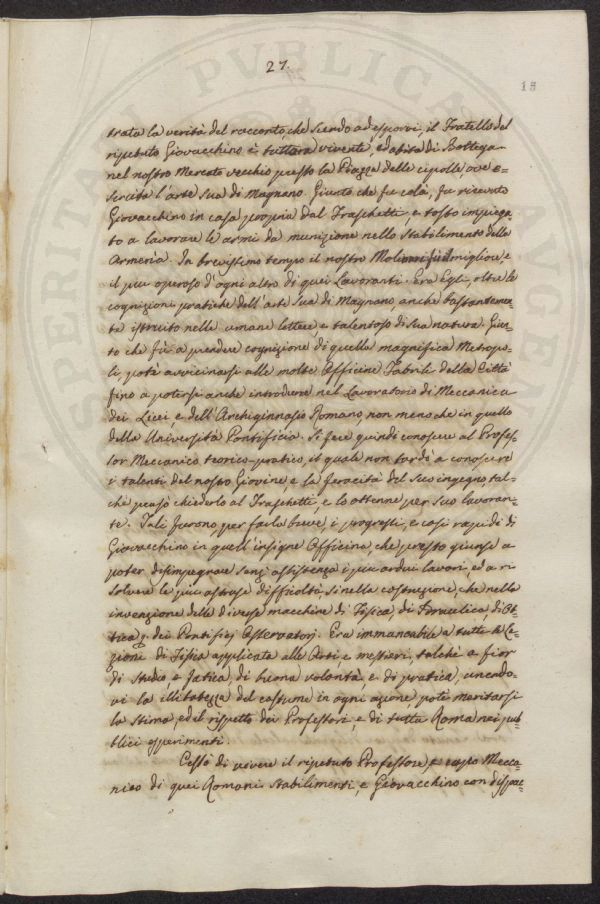 27.
18
trata la verità del racconto, che siendo ad esporvi, il Fratello del
ripetuto Giovacchino è tuttora vivente, ed abita di Bottega
nel nostro Mercato vecchio presto la Piazza delle cipolle, ove e=
sercita l'arte Sua di Magnano. Giunto che fu colà, fu ricevuto
Giovacchino in casa propria dal Fraschetti, e tosto impiega=
to a lavorare le armi da munizione nello stabilimento delle
Armeria. In brevissimo tempo il nostro migliore, e
il più operoso d'ogni altro di quei Lavoranti. Era Egli, oltre le
cognizioni pratiche dell'arte Sua di Magnano anche bastantemen=
te istruito nelle umane lettere, e talentoso di Sua natura. Giun=
to che fù a prendere cognizione di quella magnifica Metropo=
li, potè avvicinarsi alle molte Officine Fabrili della Città
fino a potersi anche introdurre nel Lavoratorio di Meccanica
dei Licei, e dell'Archiginnasio Romano, non meno che in quello
della Università Pontificia. Si fece quindi conoscere al Profes=
sor Meccanico teorico-pratico, il quale non tardò a conoscere
i talenti del nostro Giovine, e la feracità del Suo ingegno, tal=
chè pensò chiederlo al Fraschetti, e lo ottenne per suo lavoran=
te. Tali furono per farla breve, i progressi, e così rapidi di
Giovacchino in quell'insigne Officina, che presto giunse a
poter disimpegnare senz'assistenza i più ardui lavori, ed a ri
solvere le più astruse difficoltà, sì nella costruzione, che nella
invenzione delle diverse macchine di Fisica, di Idraulica, di Ot=
tica &. dei Pontificj Osservatorj. Era immancabile a tutte le Le=
zioni di Fisica applicata alle Arti, e mestieri, talchè a fior
di studio, e fatica, di buona volontà, e di pratica, unendo=
vi la illibatezza del costume in ogni azione, potè meritarsi
la stima, ed il rispetto dei Professori, e di tutta Roma nei pub=
blici esperimenti.
Cessò di vivere il ripetuto Professore, e capo Mecca=
nico di quei Romani Stabilimenti, e Giovacchino con dispac=